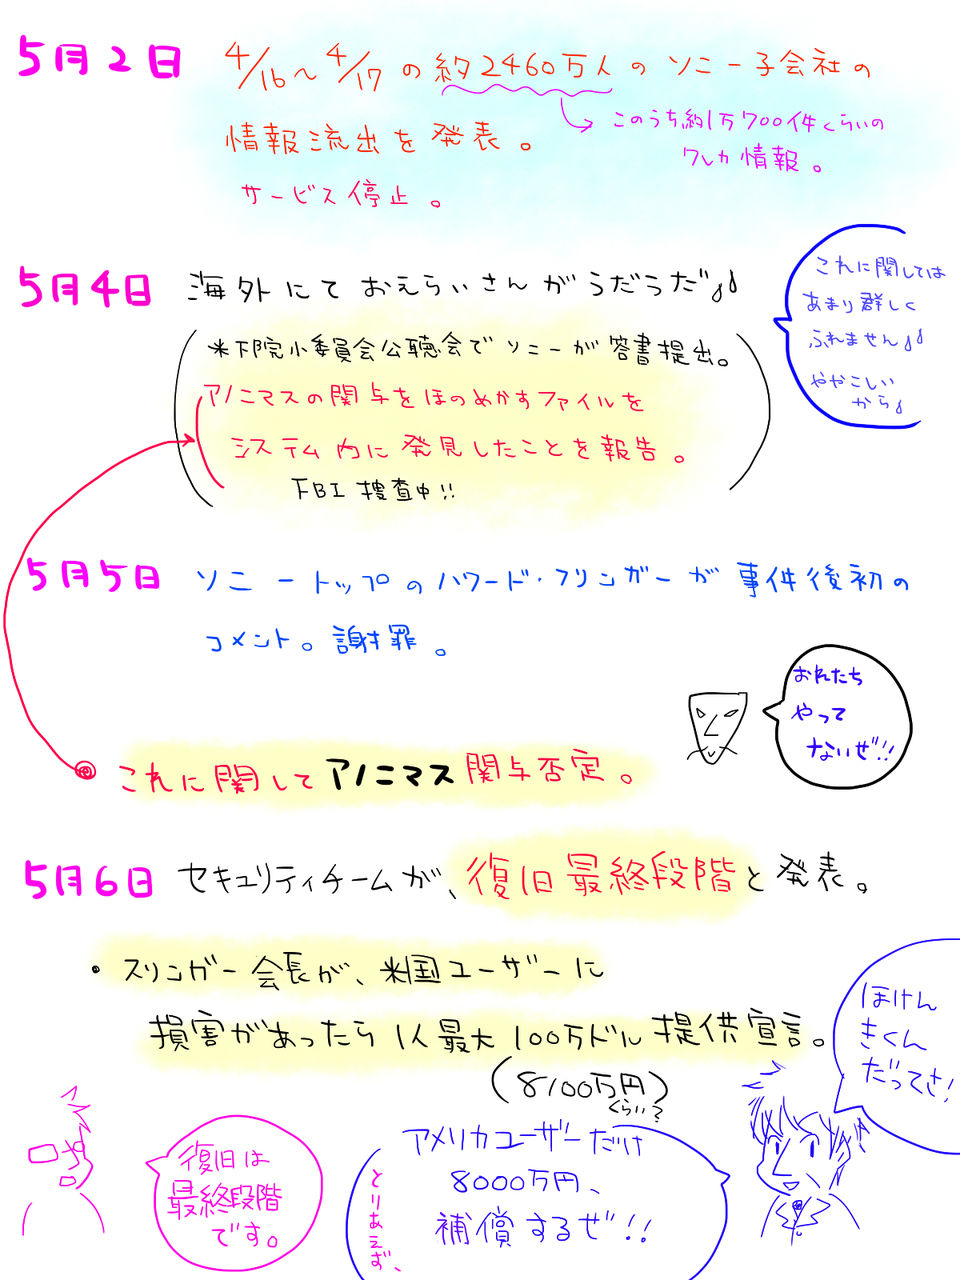 5月2日
4/16〜4/17の約2460万人のソニー子会社の
情報流出を発表。
このうち約1万700件くらいの
クレカ情報。
サービス停止。
5月4日
海外にておえらいさんがうだうだ
これに関しては
あまり群しく
ふれません
ややこしい
から
米下院小委員会公聴会でソニーが答書提出。
アノニマスの関与をほのめかすファイルを
システム内に発見したことを報告。
FBI捜査中!!
5月5日
ソニートップのハワード・フリンガーが事件後初の
コメント。謝罪。
おれたち
やって
ないぜ!!
これに関してアノニマス関与否定。
5月6日
セキュリティチームが、復旧最終段階と発表。
・スリンガー会長が、米国ユーザーに
損害があったら1人最大100万ドル提供宣言。
(8100万円)
くらい?
ほけん
きくん
だってさ!
復旧は
最終段階
です。
とりあえず、
アメリカユーザーだけ
8000万円、
補償するぜ!!